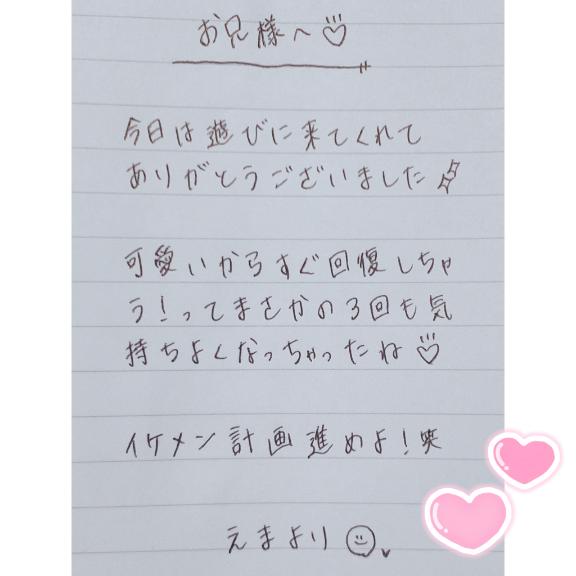 お兄様へ♡
今日は遊びに来てくれて
ありがとうございました
可愛いからすぐ回復しちゃ
う!ってまさかの3回も気
持ちよくなっちゃったね♡
イケメン計画進めよ!笑
えまより